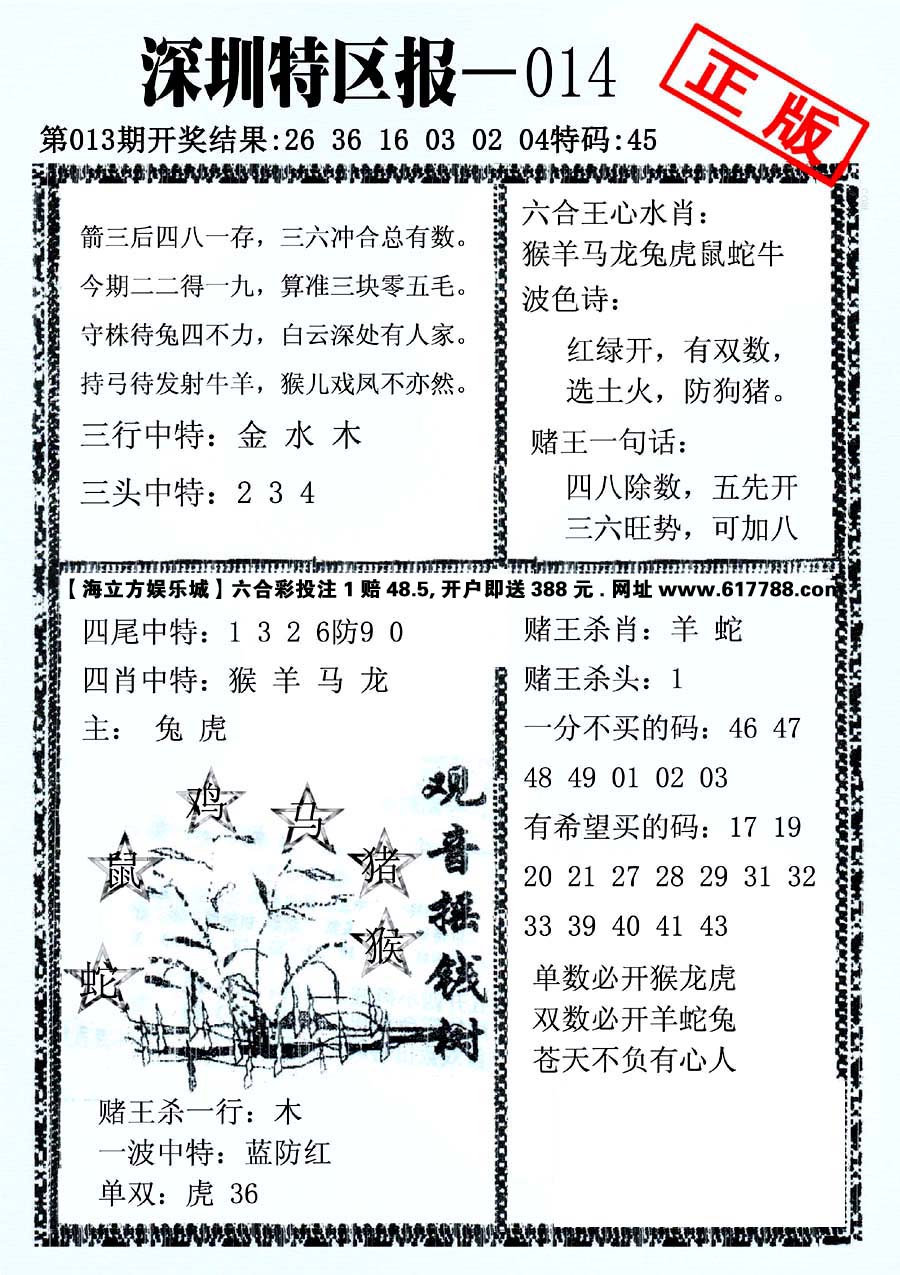 深圳特区报—014
正版
第013期开奖结果:26 36 16 03 02 04特码:45
箭三后四八一存，三六冲合总有数。
今期二二得一九，算准三块零五毛。
守株待兔四不力，白云深处有人家。
持弓待发射牛羊，猴儿戏凤不亦然。
三行中特：金 水 木
三头中特：2 3 4
六合王心水肖：
猴羊马龙兔虎鼠蛇牛
波色诗：
红绿开，有双数，
选土火，防狗猪。
赌王一句话：
四八除数，五先开
三六旺势，可加八
【海立方娱乐城】六合彩投注1赔48.5,开户即送388元.网址www.617788.com
四尾中特：1 3 2 6防9 0
四肖中特：猴 羊 马 龙
主： 兔 虎
鸡
马
鼠
猪
猴
蛇
观音摇钱树
赌王杀一行：木
一波中特：蓝防红
单双：虎 36
赌王杀肖：羊 蛇
赌王杀头：1
一分不买的码：46 47
48 49 01 02 03
有希望买的码：17 19
20 21 27 28 29 31 32
33 39 40 41 43
单数必开猴龙虎
双数必开羊蛇兔
苍天不负有心人